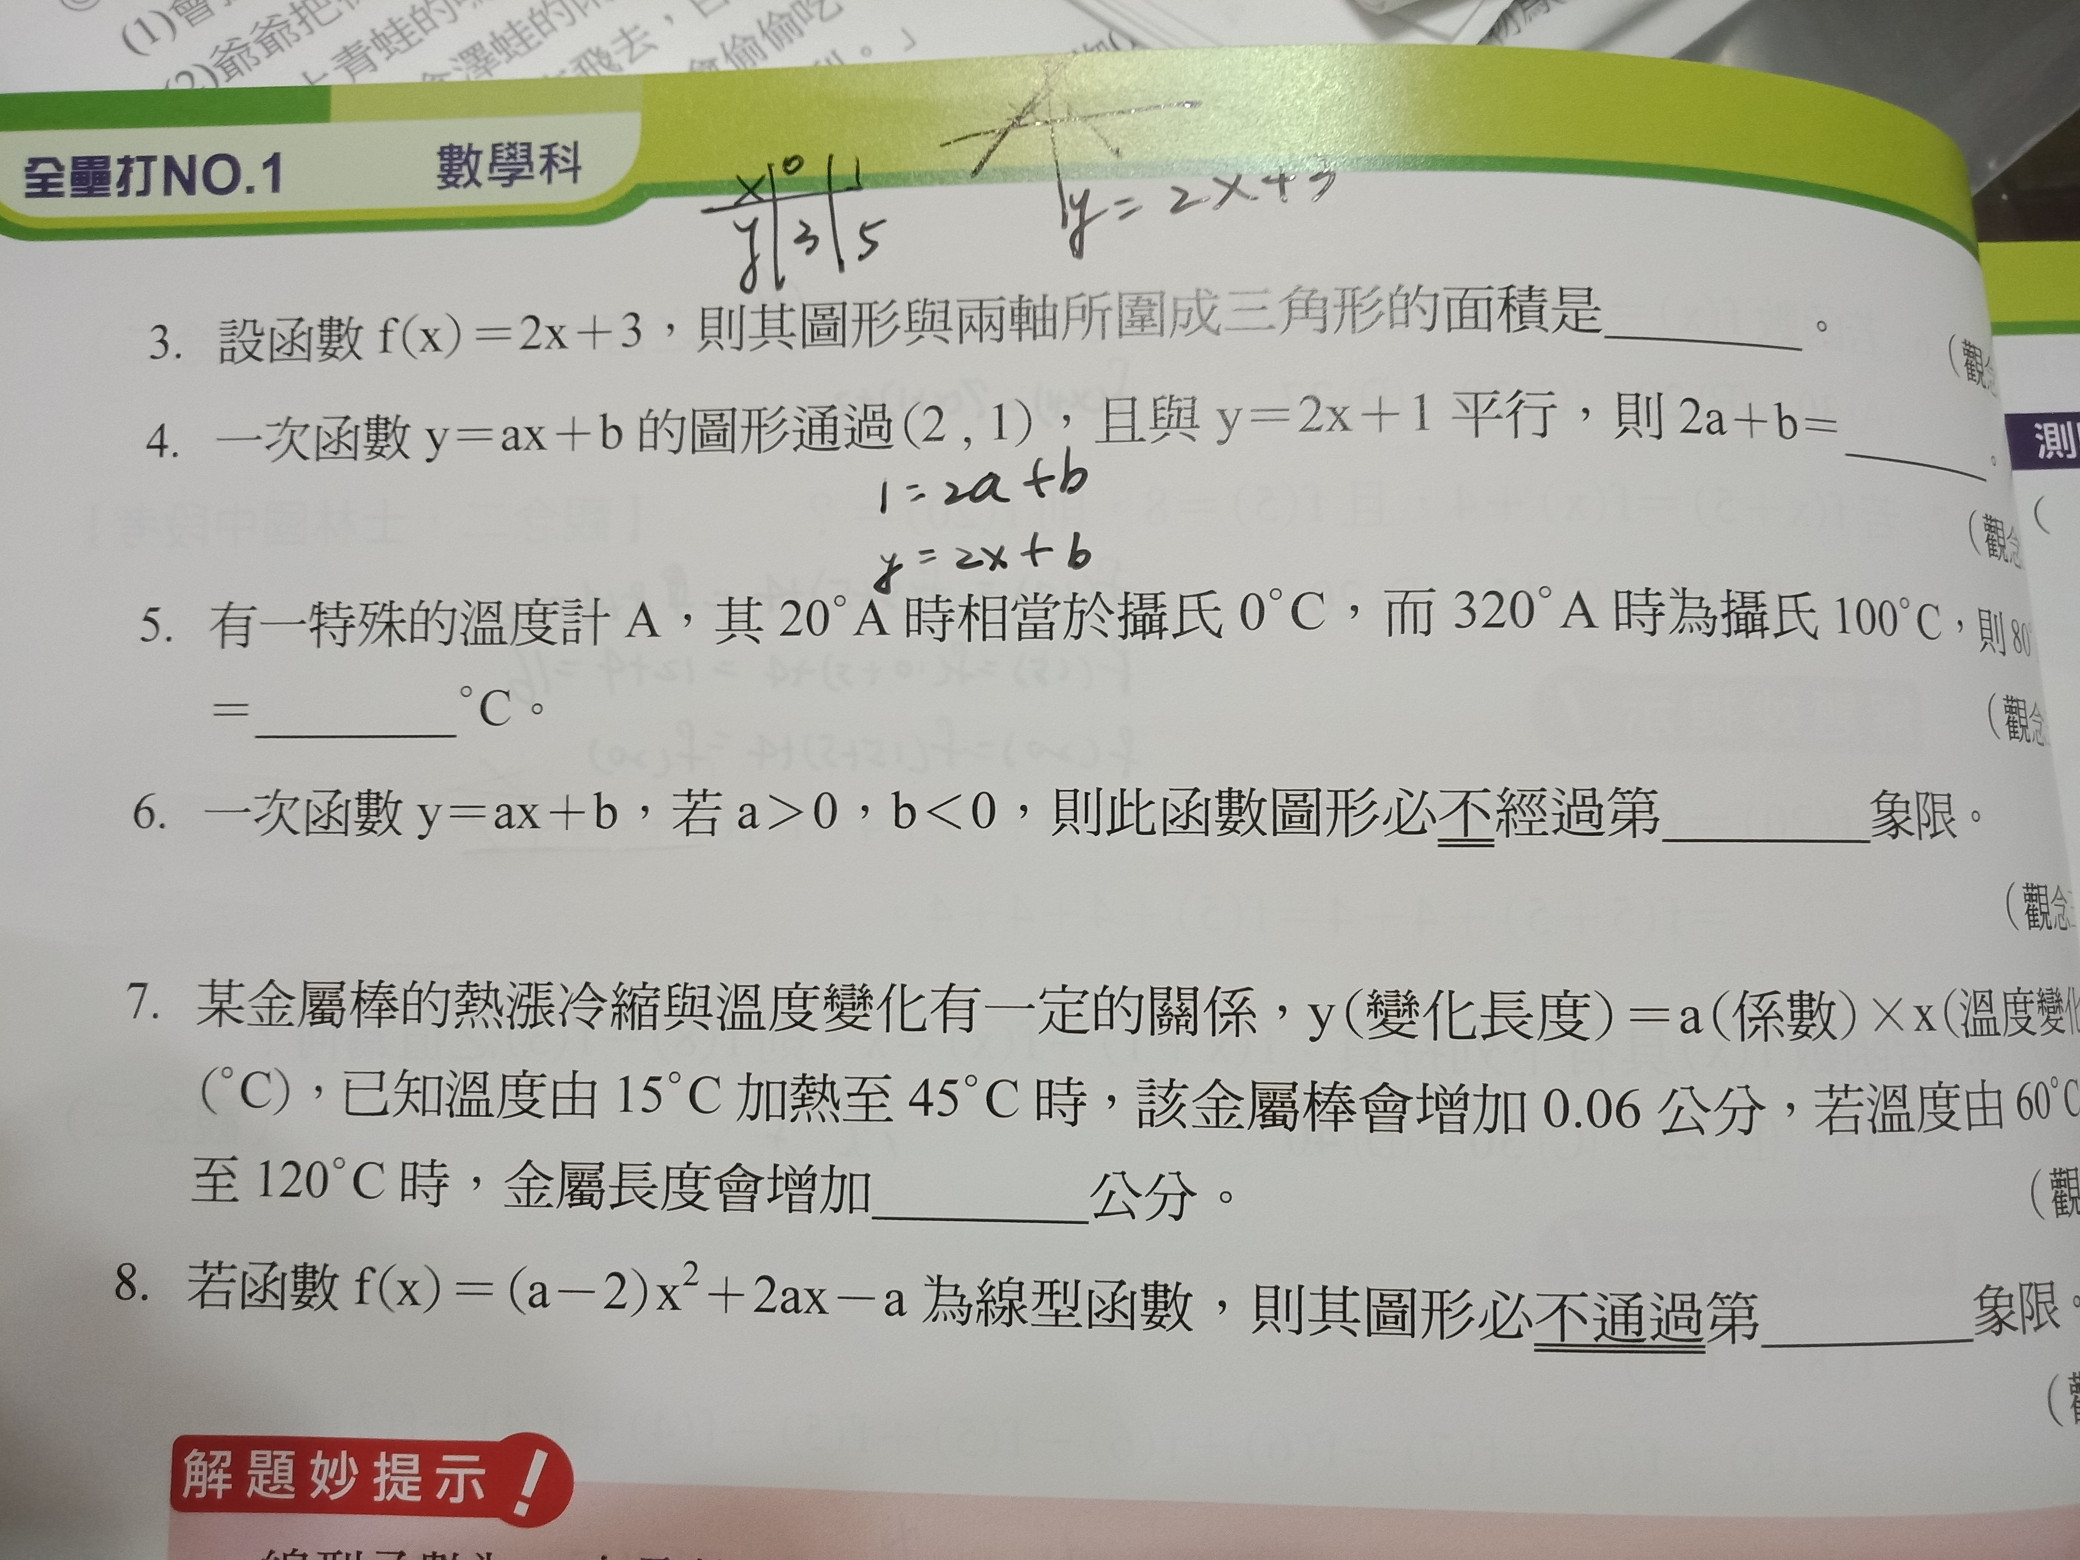 (1)
(2)爺爺把
青蛙的
澤蛙的
飛去,
偷偷吃
。」
全壘打NO.1 數學科
x 0 1
y 3 5
y=2x+3
3. 設函數 f(x)=2x+3,則其圖形與兩軸所圍成三角形的面積是________。
(觀念
4. 一次函數 y=ax+b 的圖形通過(2 , 1),且與 y=2x+1 平行,則 2a+b=________。
1=2a+b
(觀念
y=2x+b
5. 有一特殊的溫度計 A,其 20°A 時相當於攝氏 0°C,而 320°A 時為攝氏 100°C,則 80°
=________°C。
(觀念
6. 一次函數 y=ax+b,若 a>0,b<0,則此函數圖形必不經過第________象限。
(觀念
7. 某金屬棒的熱漲冷縮與溫度變化有一定的關係,y(變化長度)=a(係數)×x(溫度變化
(°C),已知溫度由 15°C 加熱至 45°C 時,該金屬棒會增加 0.06 公分,若溫度由 60°C
至 120°C 時,金屬長度會增加________公分。
(觀
8. 若函數 f(x)=(a-2)x²+2ax-a 為線型函數,則其圖形必不通過第________象限。
解題妙提示!
測
(